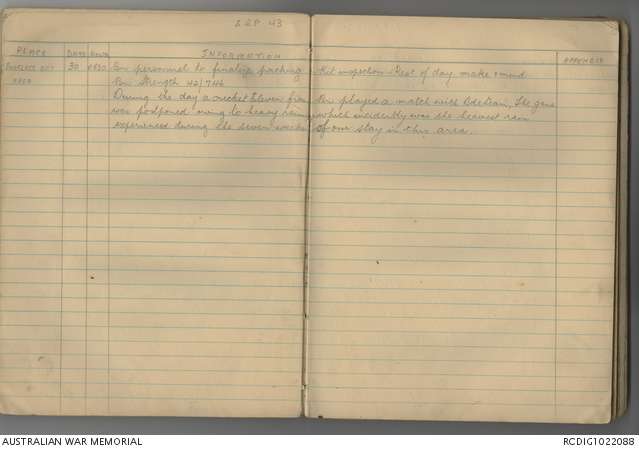 SEP 43
PLACE DATE HOUR INFORMATION APPENDIX
30 0830 Bn personnel to finalise packing. Kit inspection. Rest of day make & mend
AREA Bn Strength 42/746
During the day a cricket Eleven from Bn played a match with Bdebean, the game
was postponed owing to heavy rain, which incidently was the heaviest rain
experienced during the seven weeks of our stay in this area.
AUSTRALIAN WAR MEMORIAL RCDIG1022088